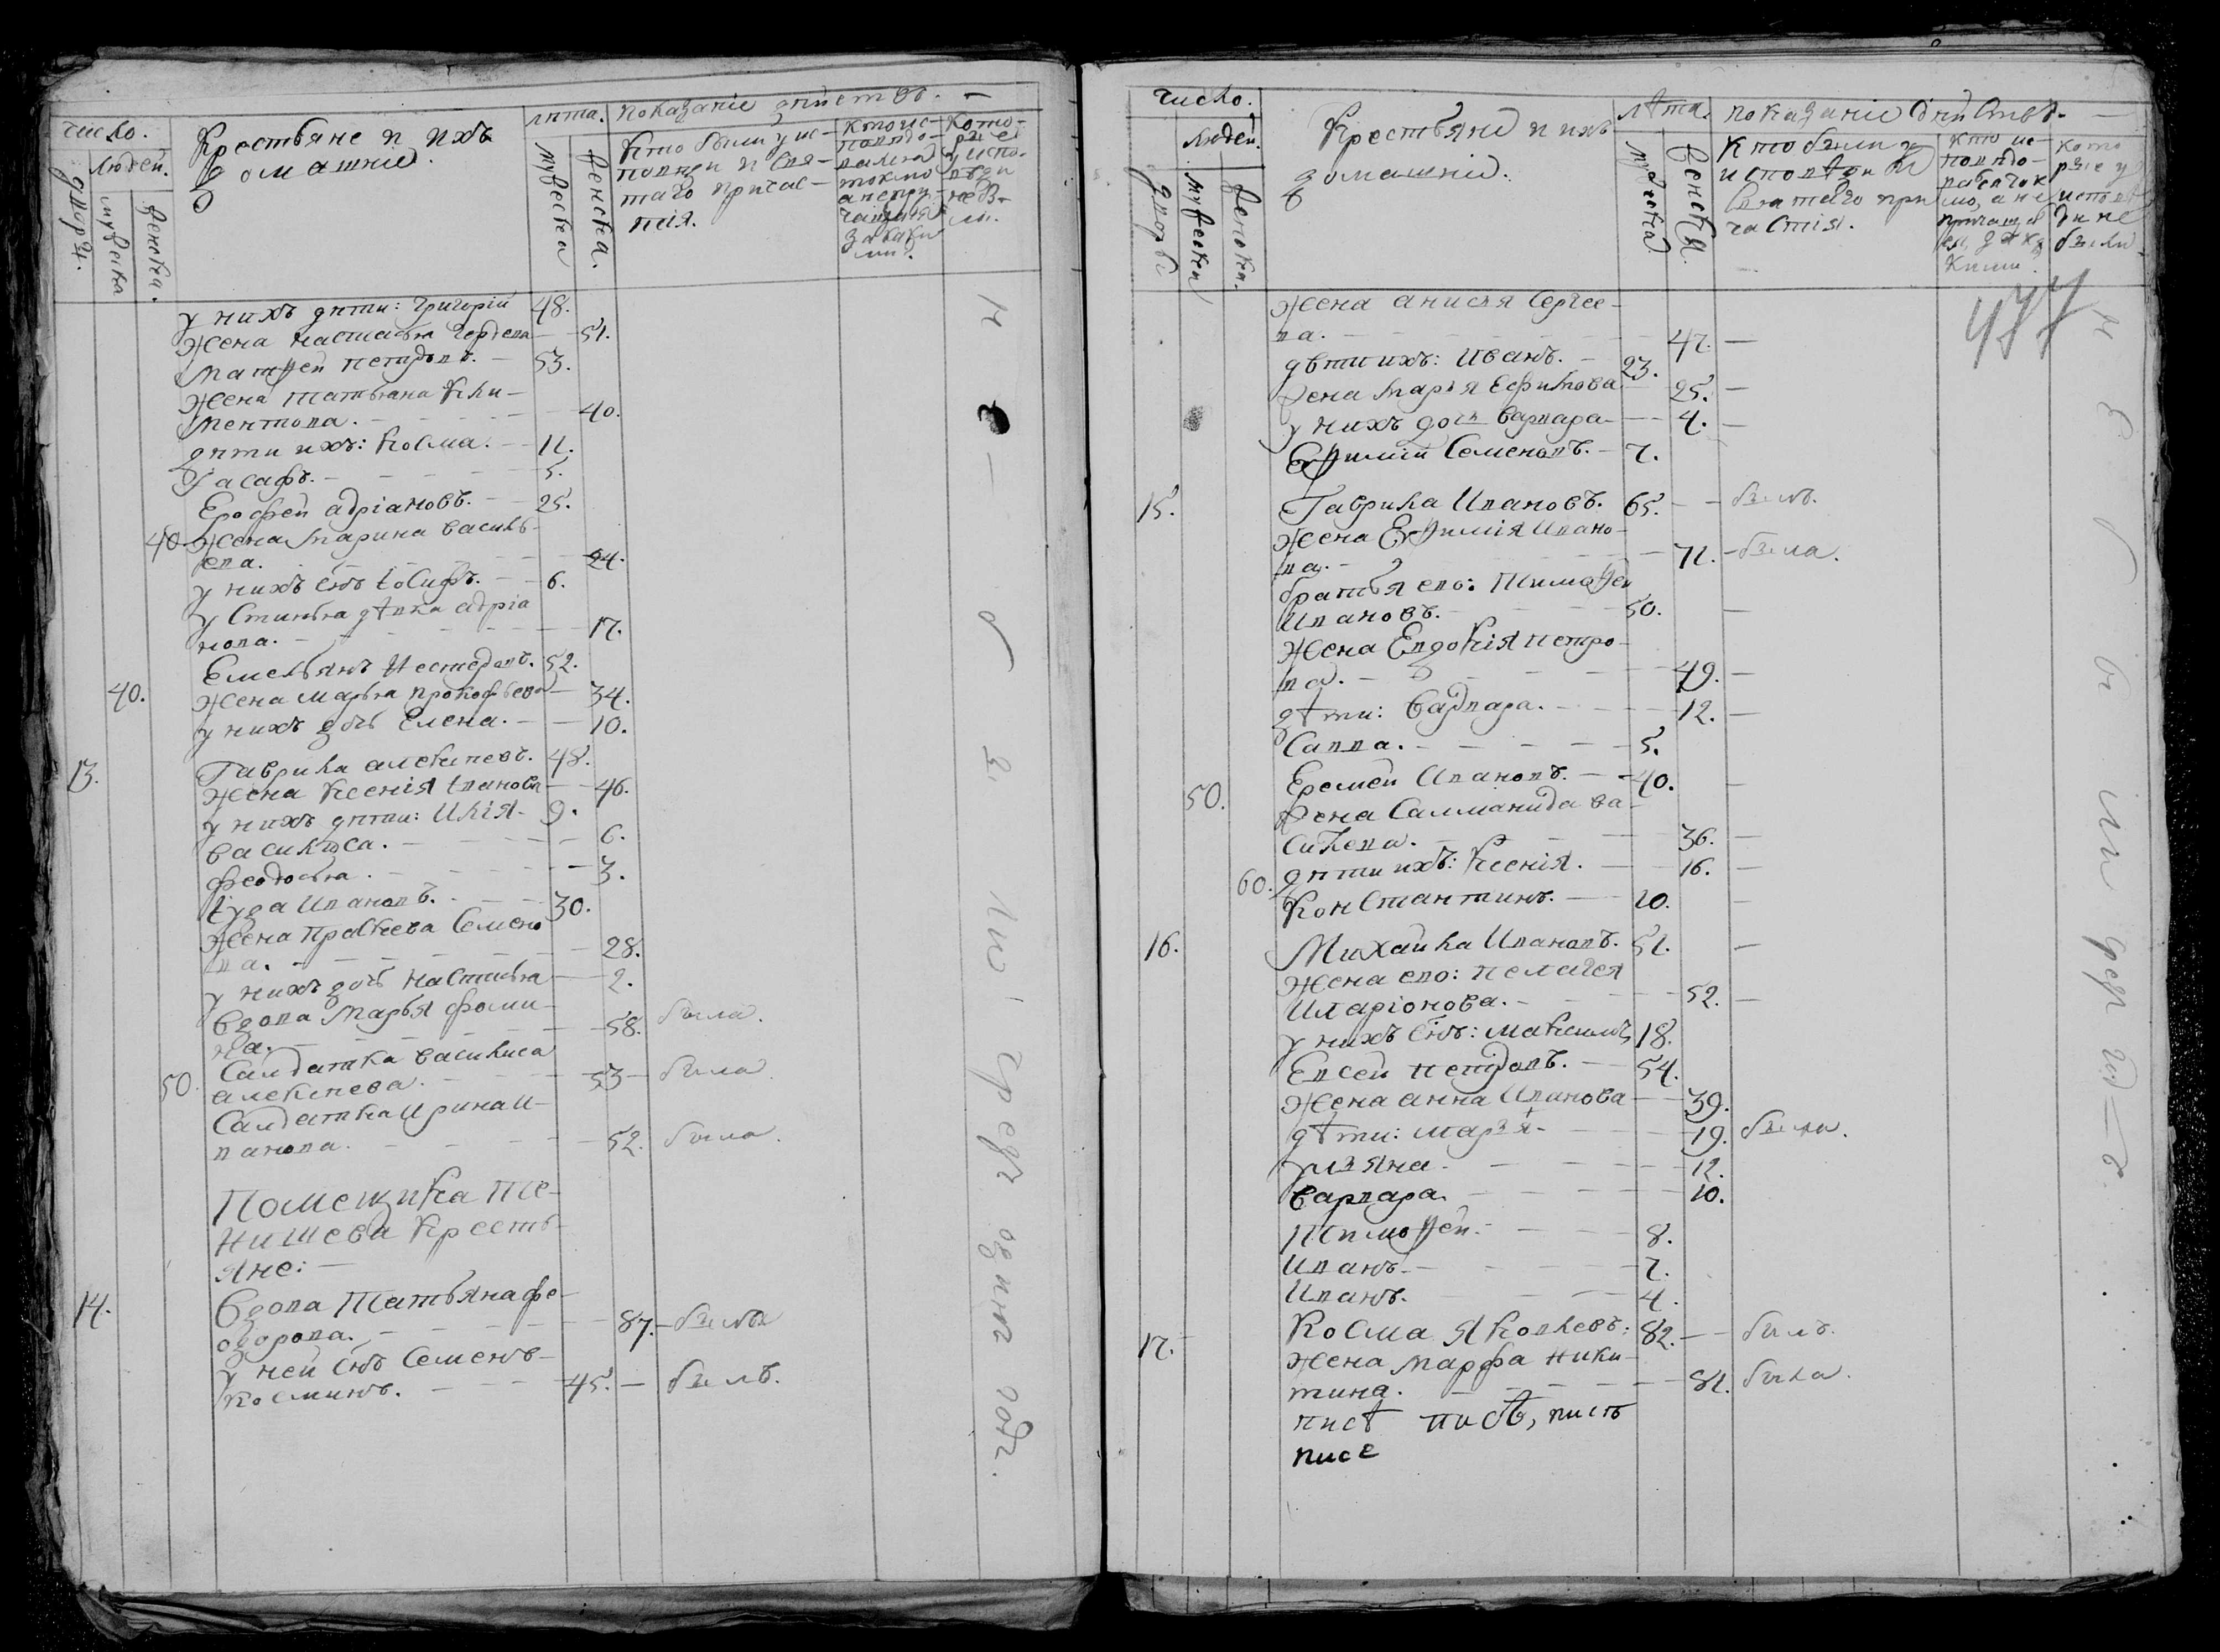 число.
Крестьяне и ихъ
домашніе.
лѣта.
показаніе дѣйствъ. —
людей.
дворы.
мужеска
женска.
мужеска
женска.
Кто были у ис-
повѣди и Свя-
таго причас-
тія.
кто ис-
повѣдо-
вался
токмо
а непри-
чащался
за каки
ми.
Кото-
рые
у испо-
вѣди
небы-
ли.
у нихъ дѣти: Григорій 48.
Жена Настасья — 51.
Матѳей Петровъ. — 53.
Жена Татьяна Кли-
ментова. — 40.
дѣти ихъ: Косма. — 11.
Іасафъ. — 5.
Ерофей Адріановъ. — 25.
40. Жена Марина Василь-
ева. — 24.
у нихъ снъ Іосифъ. — 6.
устинья дѣвка Адріа
нова. — 17.
Емельянъ Нестеровъ. 52.
40. Жена Марья Прокофьева — 34.
у нихъ дочь Елена. — 10.
13. Гаврила Алексѣевъ. 48.
Жена Ксенія Іванова — 46.
у нихъ дѣти: Илія. 9.
Василиса. — 6.
Феодосья. — 3.
Іуда Ивановъ. — 30.
Жена Прасковья Семено
ва. — 28.
у нихъ дочь Настасья — 2.
Вдова Марья Фоми-
на. — 58. была.
50. Салдатка Василиса
Алексѣева. — 53 — была
Салдатка Ирина И-
ванова. — 52. была.
Помещика Те-
нишева Кресть-
яне: —
14. Вдова Татьяна Фе-
одорова. — 87. — была
у ней снъ Семенъ
Косминъ. — 45. — былъ.
н
е
б
ы
ли
среди
число.
Крестьяне и ихъ
домашніе.
лѣта.
показаніе дѣйствъ. —
людей.
дворы
мужеска
женска.
мужеска
женска.
Кто были у
исповѣди и
Святаго при
частія.
Кто ис-
повѣдо-
вался ток
мо, а не
причащал
ся,
Кими.
кото
рые у
исповѣ
ди не
были
477
Жена Анисья Сергее-
ва. — 47. —
дѣти ихъ: Иванъ. — 23.
Жена Марья Ефимова 25. —
у нихъ дочь Варвара — 4. —
Еѳимій Семеновъ. — 7.
15. Гаврила Ивановъ. 65. — былъ.
Жена Еѳимія Ивано-
ва. — 71. — была.
братья ево: Тимоѳей
Ивановъ. — 50. —
Жена Евдокія Петро-
ва. — 49. —
дѣти: Варвара. — 12. —
Савва. — 5.
50. Еремей Ивановъ. — 40. —
Жена Салманида Ва-
силева. — 36. —
60. дѣти ихъ: Ксенія. — 16. —
Константинъ. — 10. —
16. Михайла Ивановъ. 51. —
Жена ево: Пелагея
Иларіонова. — 52. —
у нихъ снъ: Максимъ 18.
Евсей Петровъ. — 54.
Жена Анна Иванова — 39.
дѣти: Марья — 19. была.
ульяна — 12.
Варвара. — 10.
Тимоѳей. — 8.
Иванъ. — 7.
Иванъ. — 4.
17. Косма Яковлевъ. 82. — былъ.
Жена Марфа Ники
тина. — 81. была.